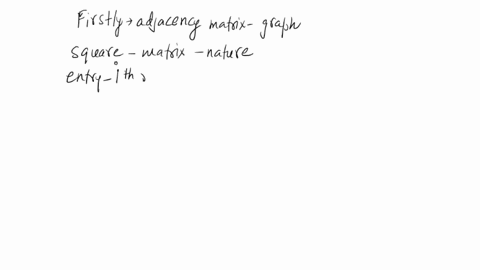 Firstly → adjacency matrix - graph
square - matrix - nature
entry - ith